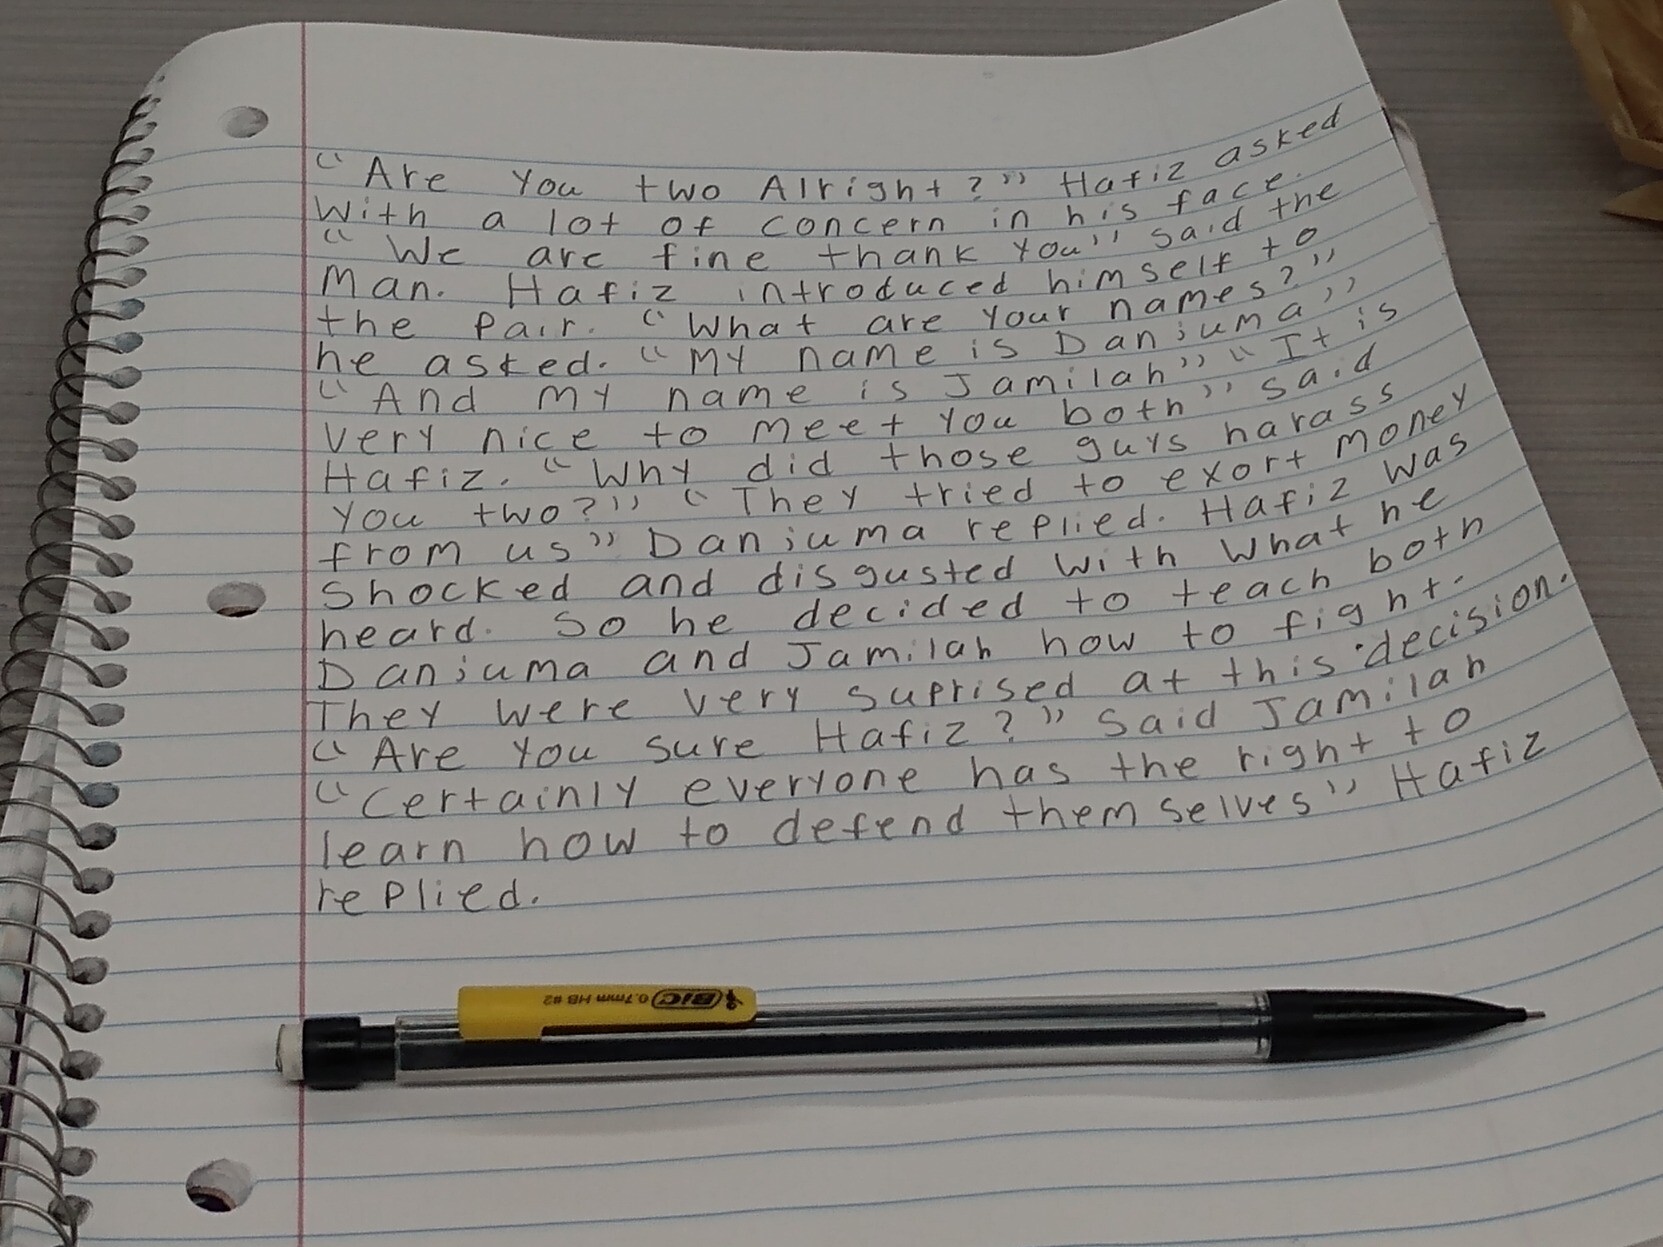 "Are You two Alright?" Hafiz asked
With a lot of concern in his face.
"We are fine thank You" said the
Man. Hafiz introduced himself to
the Pair. "What are Your names?"
he asked. "My name is Danjuma"
"And my name is Jamilah" "It is
very nice to meet You both" said
Hafiz. "Why did those guys harass
You two?" "They tried to exort money
from us" Danjuma replied. Hafiz was
Shocked and disgusted with what he
heard. So he decided to teach both
Danjuma and Jamilah how to fight.
They were very suprised at this decision.
"Are You sure Hafiz?" Said Jamilah
"Certainly everyone has the right to
learn how to defend themselves" Hafiz
replied.
BIC 0.7mm HB #2